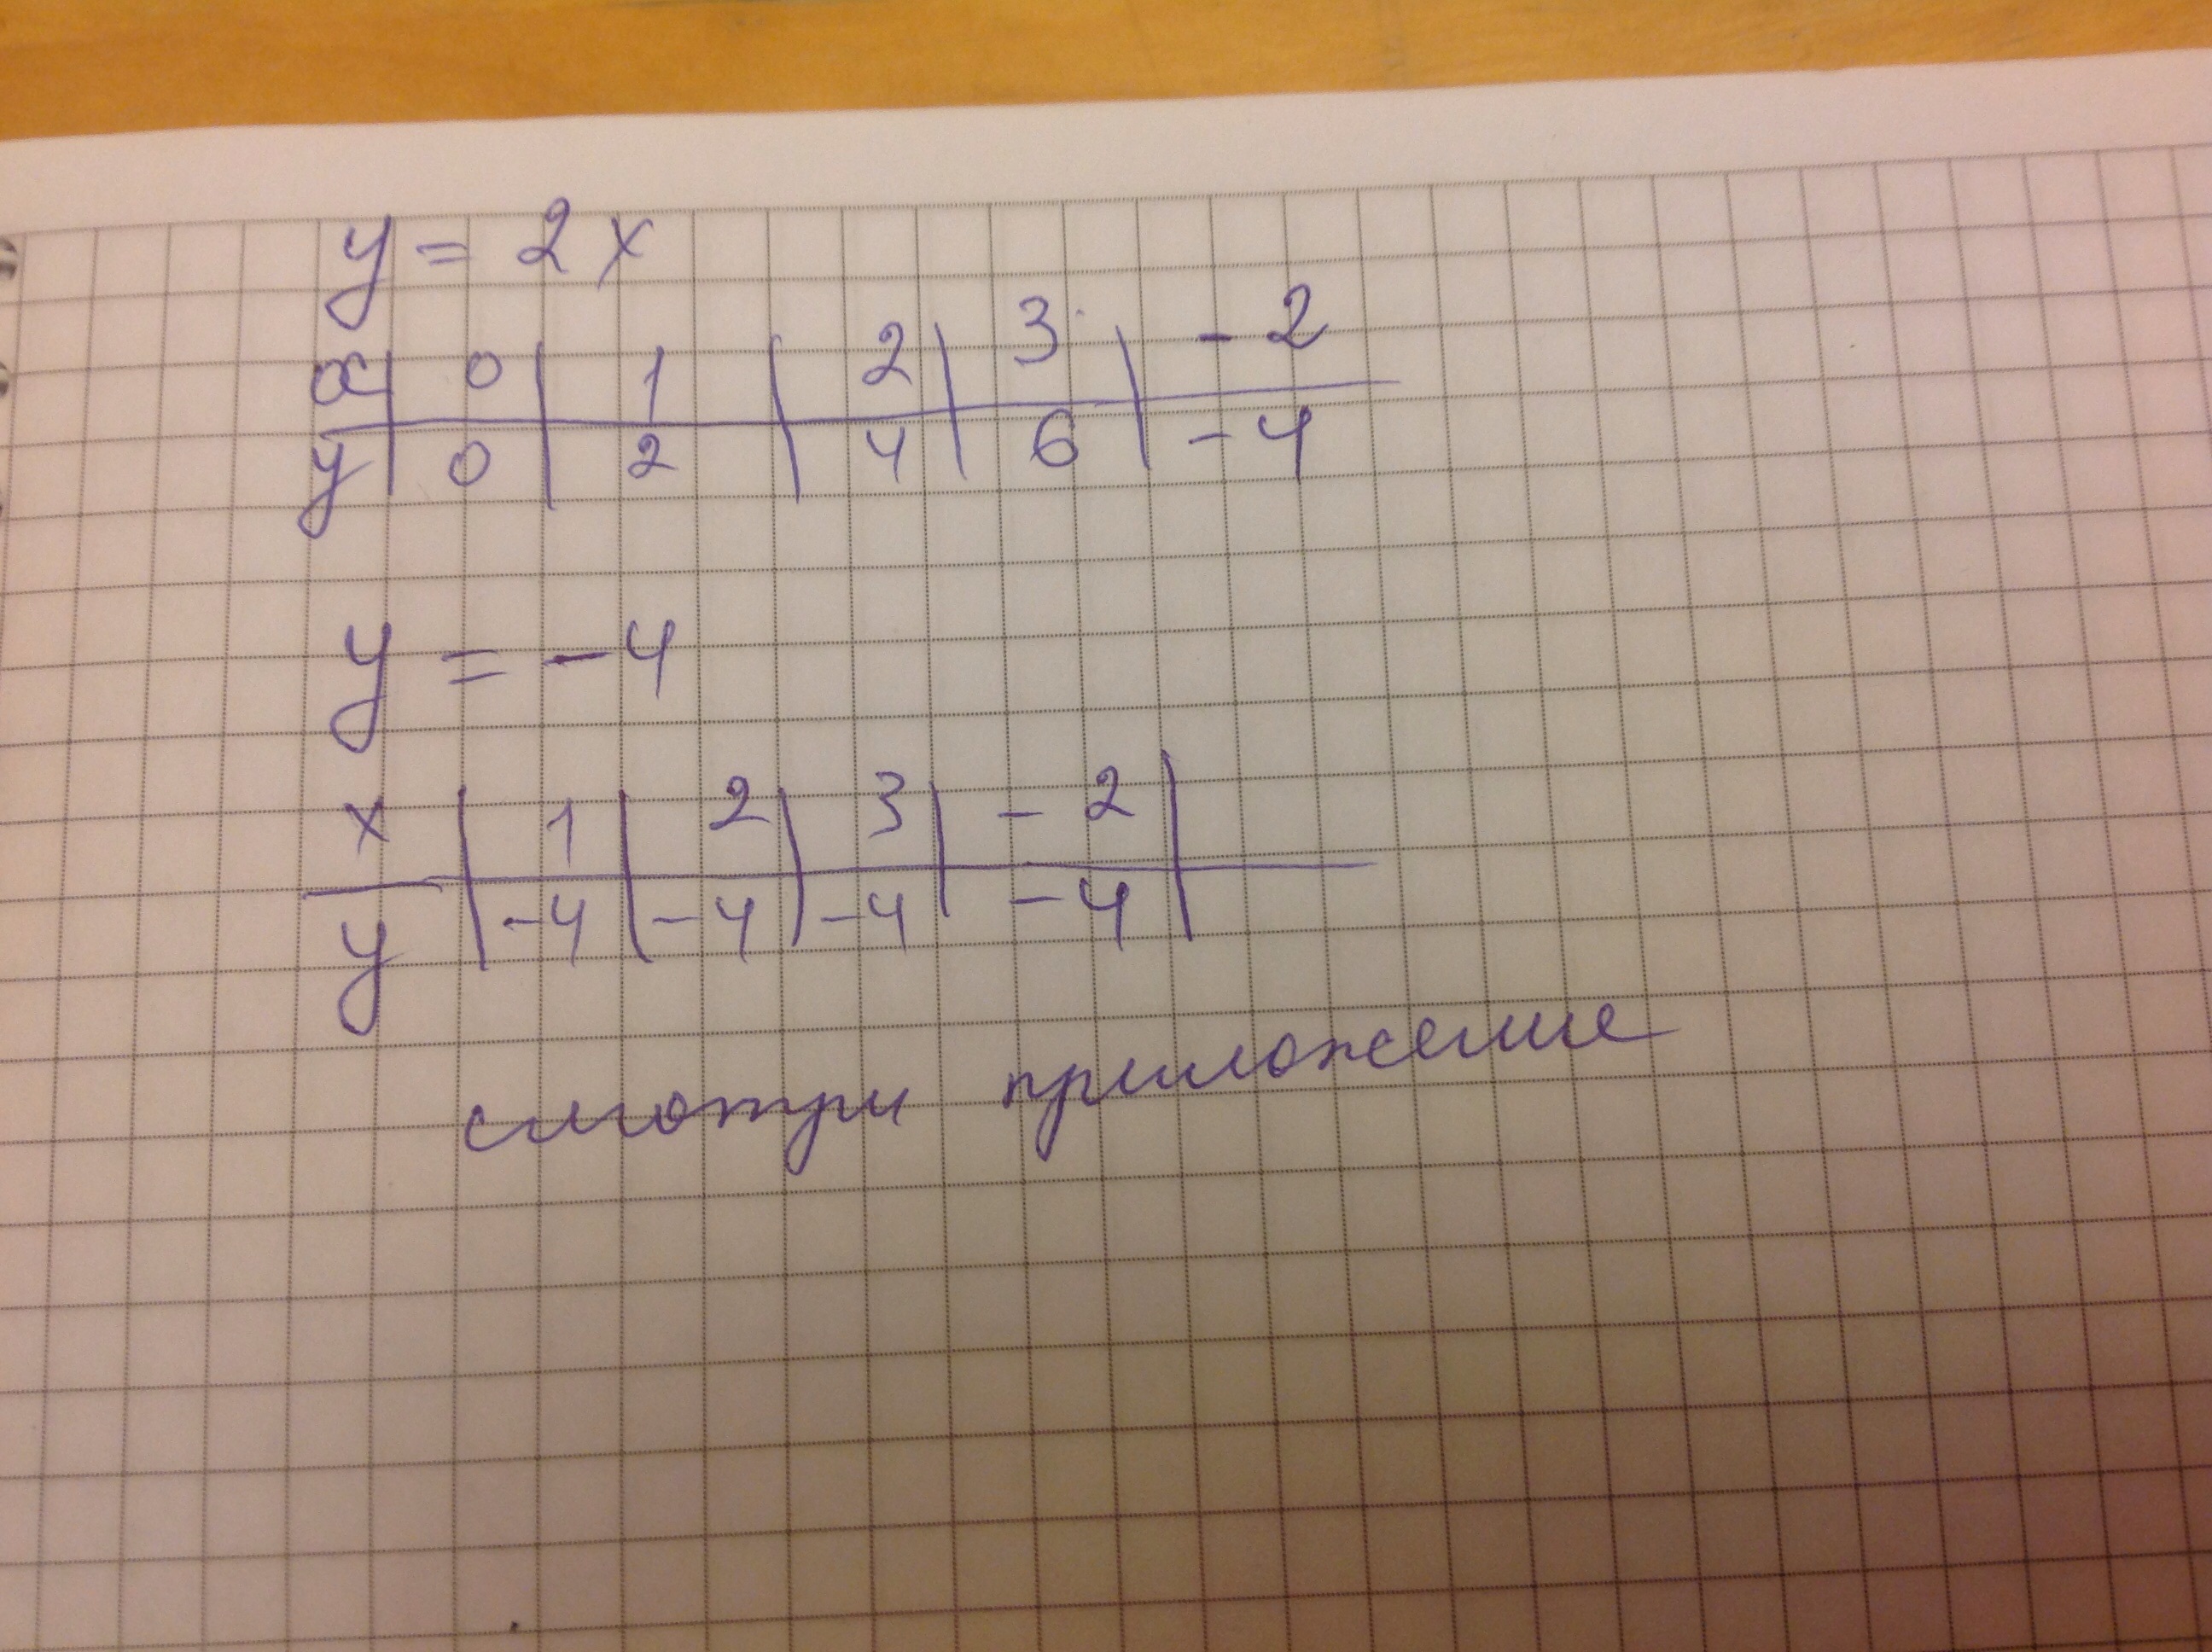 y = 2x
x | 0 | 1 | 2 | 3 | -2
y | 0 | 2 | 4 | 6 | -4
y = -4
x | 1 | 2 | 3 | -2 |
y | -4 | -4 | -4 | -4 |
смотри приложение